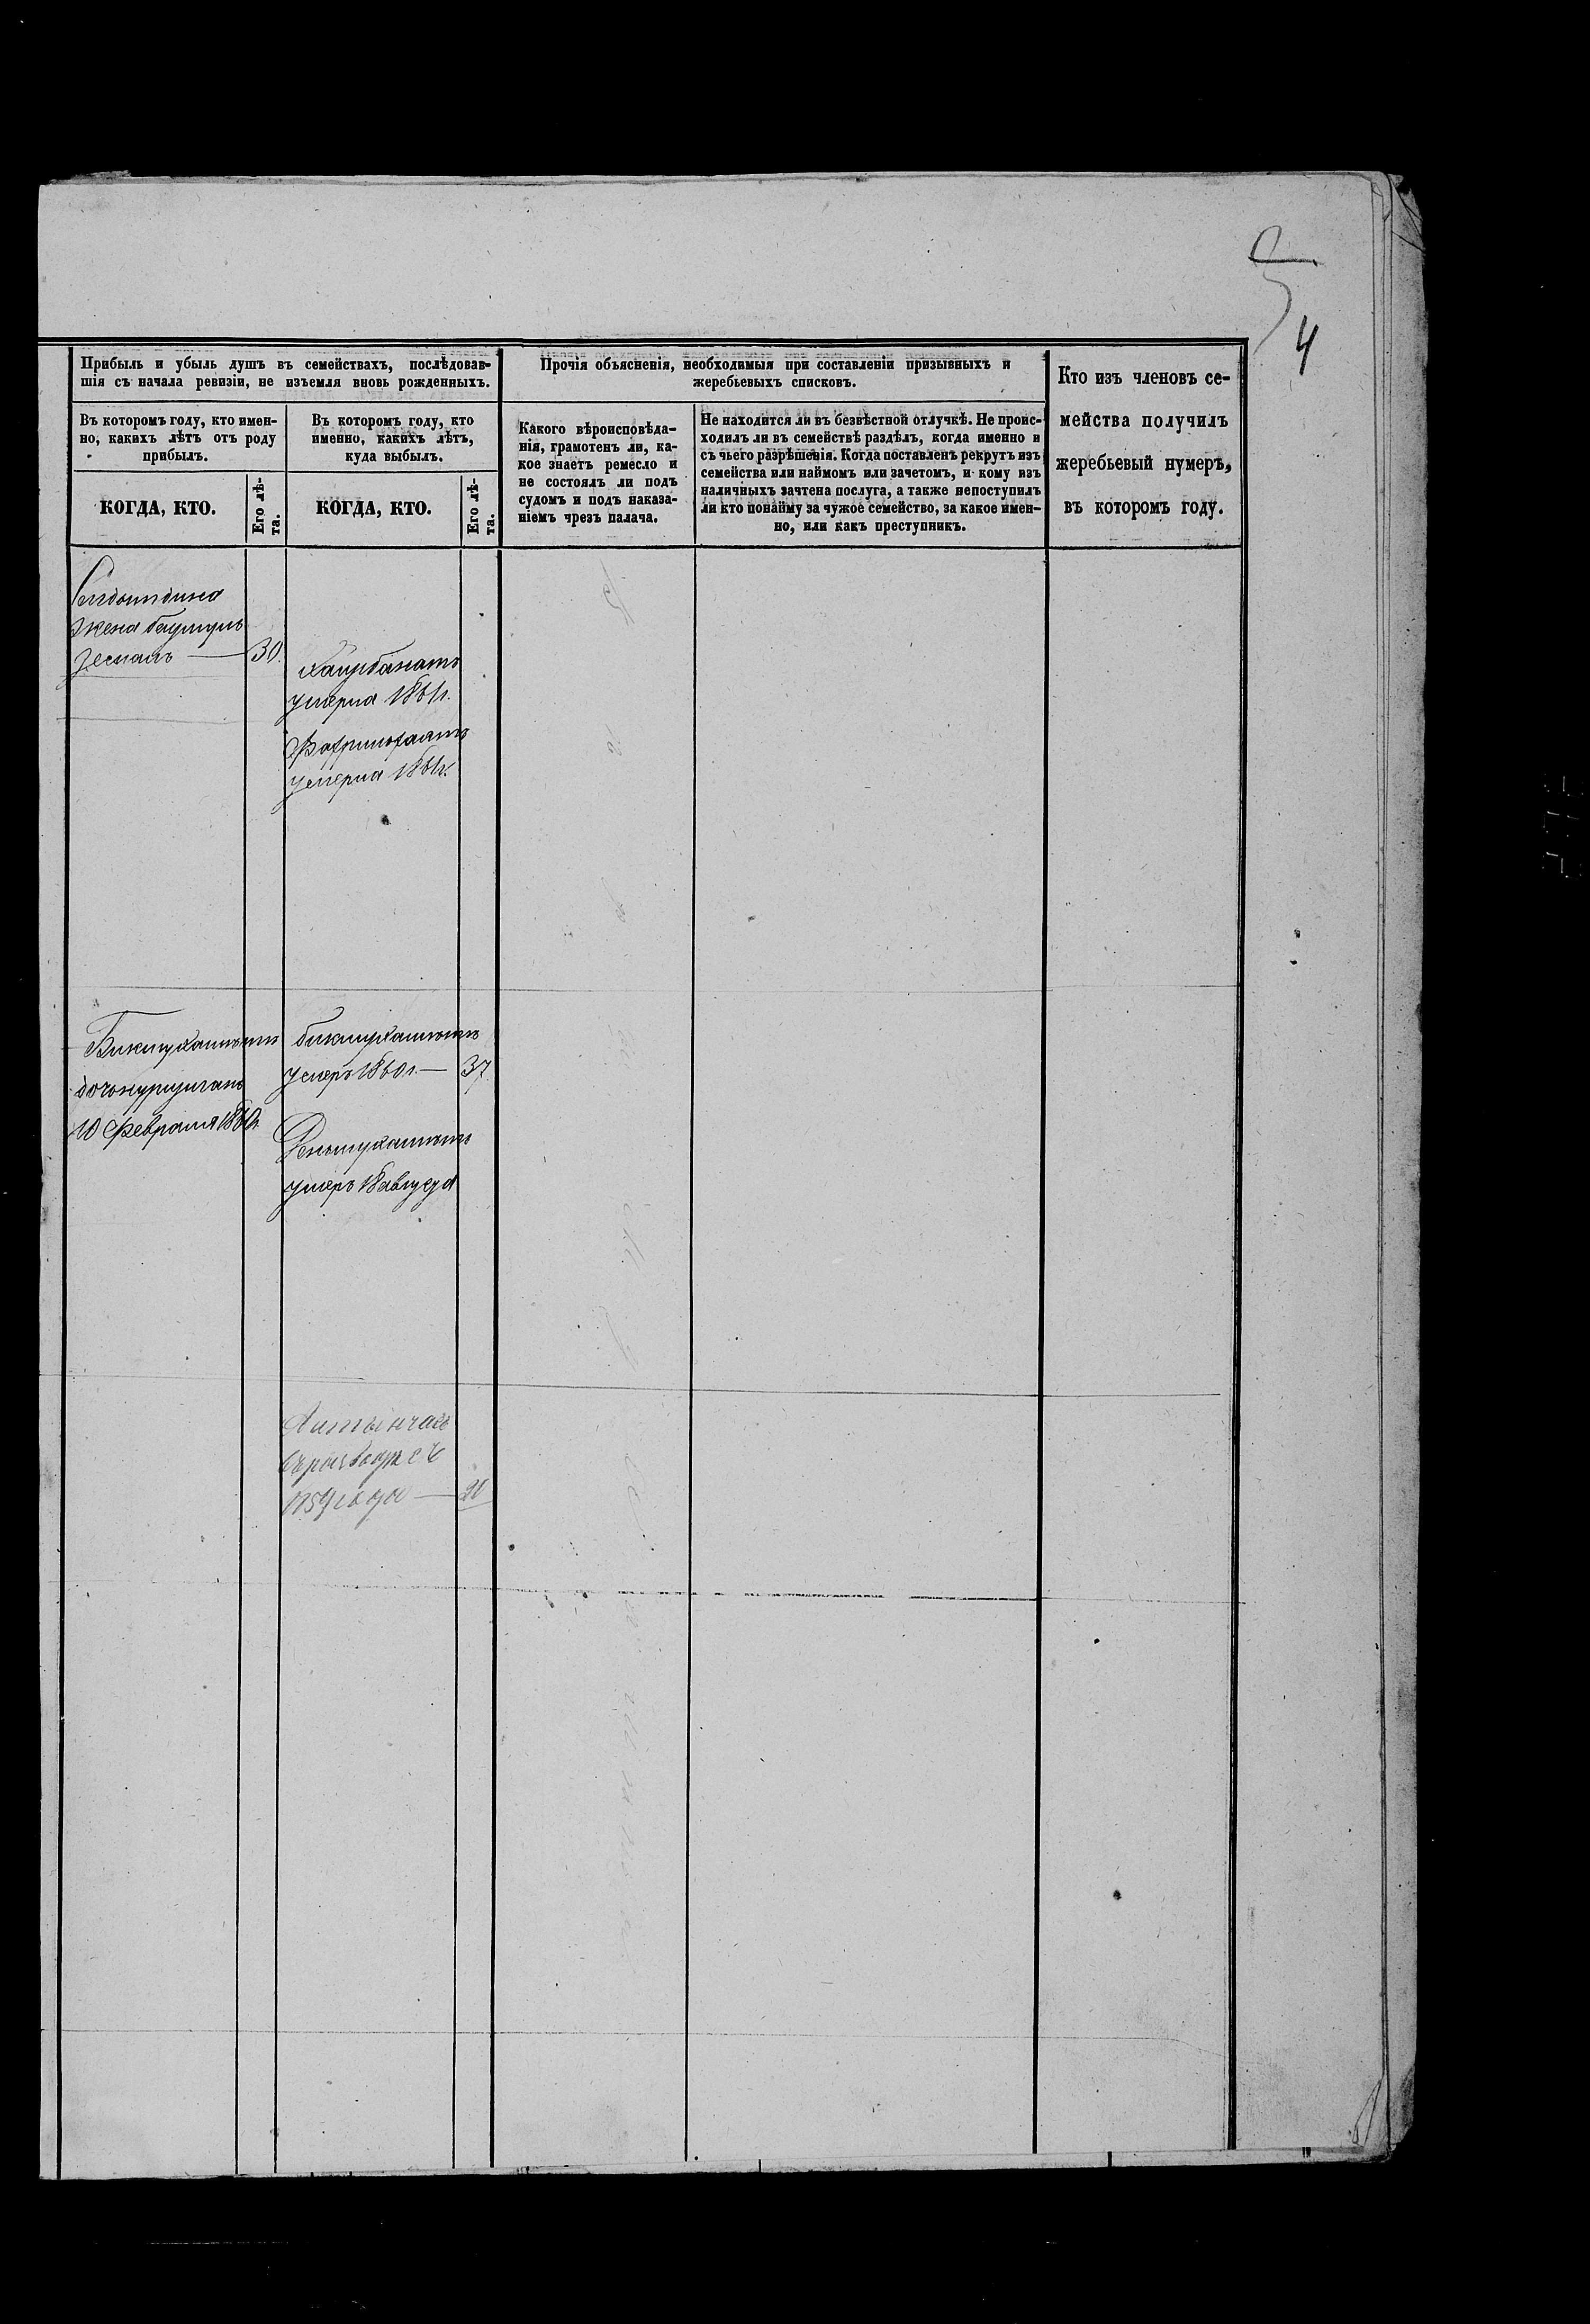 4
Прибыль и убыль душъ въ семействахъ, послѣдовав-
шія съ начала ревизіи, не изъемля вновь рожденныхъ.
Въ которомъ году, кто имен-
но, какихъ лѣтъ отъ роду
прибылъ.
КОГДА, КТО.
Его лѣ-
та.
Въ которомъ году, кто
именно, какихъ лѣтъ,
куда выбылъ.
КОГДА, КТО.
Его лѣ-
та.
Прочія объясненія, необходимыя при составленіи призывныхъ и
жеребьевыхъ списковъ.
Какого вѣроисповѣда-
нія, грамотенъ ли, ка-
кое знаетъ ремесло и
не состоялъ ли подъ
судомъ и подъ наказа-
ніемъ чрезъ палача.
Не находится ли въ безвѣстной отлучкѣ. Не проис-
ходилъ ли въ семействѣ раздѣлъ, когда именно и
съ чьего разрѣшенія. Когда поставленъ рекрутъ изъ
семейства или наймомъ или зачетомъ, и кому изъ
наличныхъ зачтена послуга, а также непоступилъ
ли кто понайму за чужое семейство, за какое имен-
но, или какъ преступникъ.
Кто изъ членовъ се-
мейства получилъ
жеребьевый нумеръ,
въ которомъ году.
жена
30.
умерла 1861г.
умерла 1861г.
Бикмухаметъ
дочь
10 Февраля 1860г.
бикмухаметъ
умеръ 1860г. — 37
умеръ 18 августа
Алтынчасъ
1859 года — 20